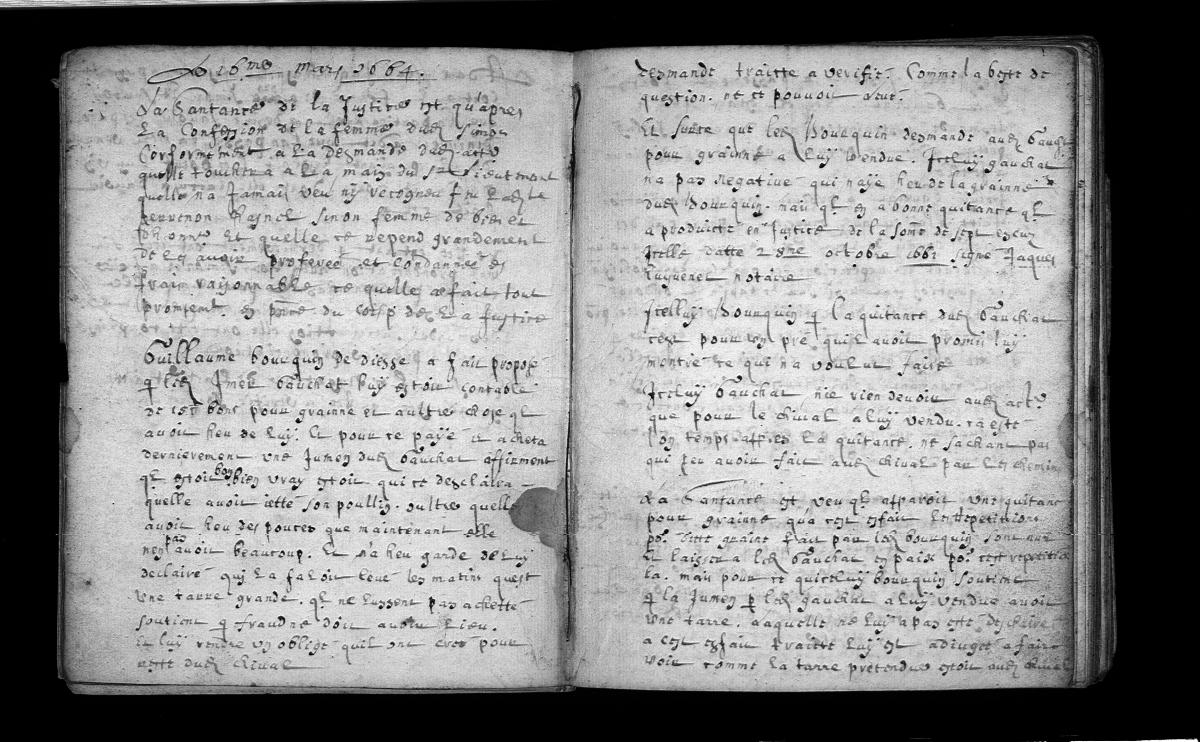 Le 16.me mars 1664.
La Santance de la Justice est qu'apres
La Confession de la femme dud. Simon
Conformement a la demande dud. acte
quelle touchera a la main du Sr Lieutenant
quelle na Jamais veu ny recogneu
perrenon femme de bien et
dhonn. Et quelle se repend grandement
de les avoir proferee et Condannee es
frais raisonnable ce quelle a fait tout
promtemt. en pnce du Corps de la Justice
Guillaume bourquin de diesse a fait propose
q led. Imer Gauchat luy estoit Contable
de bons pour grainne et aultre chose ql
avoit heu de luy. Et pour ce paye il acheta
dernierement une Jument dud. Gauchat affirment
ql estoit bon bien vray estoit qui ce desclaira
quelle avoit jette son poullin. oultre quelle
avoit heu des pouces que maintenant elle
nen pas avoit beaucoup. Et n'a heu garde de luy
declaire quj la faloit leve les matins quest
une tarre grande. ql ne lussent pas achette
soutient q fraudne doit avoir lieu.
et luy rendre un oblige quil ont pour
reste dud. chival
desmande traitte a verifie. Comme la beste de
question. ne ce pouvoit leve.
Et surce que led. Bourquin desmande aud. Gauchat
pour grainne a luy vendue. Jcelluy gauchat
na pas negative qui naye heu de la grainne
dud. Bourquin. mais ql en a bonne quitance ql
a produicte en Justice de la some de sept escuz
Jcelle datte 28me octobre 1661 signe Jaques
notaire
Jcelluy Bourquin q la quitance dud. Gauchat
cest pour un pre quil avoit promis luy
montre ce qui na voulut faire
Jcelluy Gauchat nie rien devoir aud. act.
que pour le chival a luy vendu. ca este
lon temps appres la quitance. ne sachant pas
qui peu avoir fait aud. chival par les chemins
La Santance est, veu ql apparoit une quitance
pour grainne qua cest esfait les repetitions
po. ditte graine fait par led. bourquin sont nul
Et laissera led. Gauchat en paix po. cest repetition
la. mais pour ce quicelluy bourquin soutient
q la Jument q led. gauchat a luy vendue avoit
une tarre. laquelle ne luy a pas este desclaire
a cest esfait traitte luy est adiugee a faire
voir comme la tarre pretendue estoit aud. chival